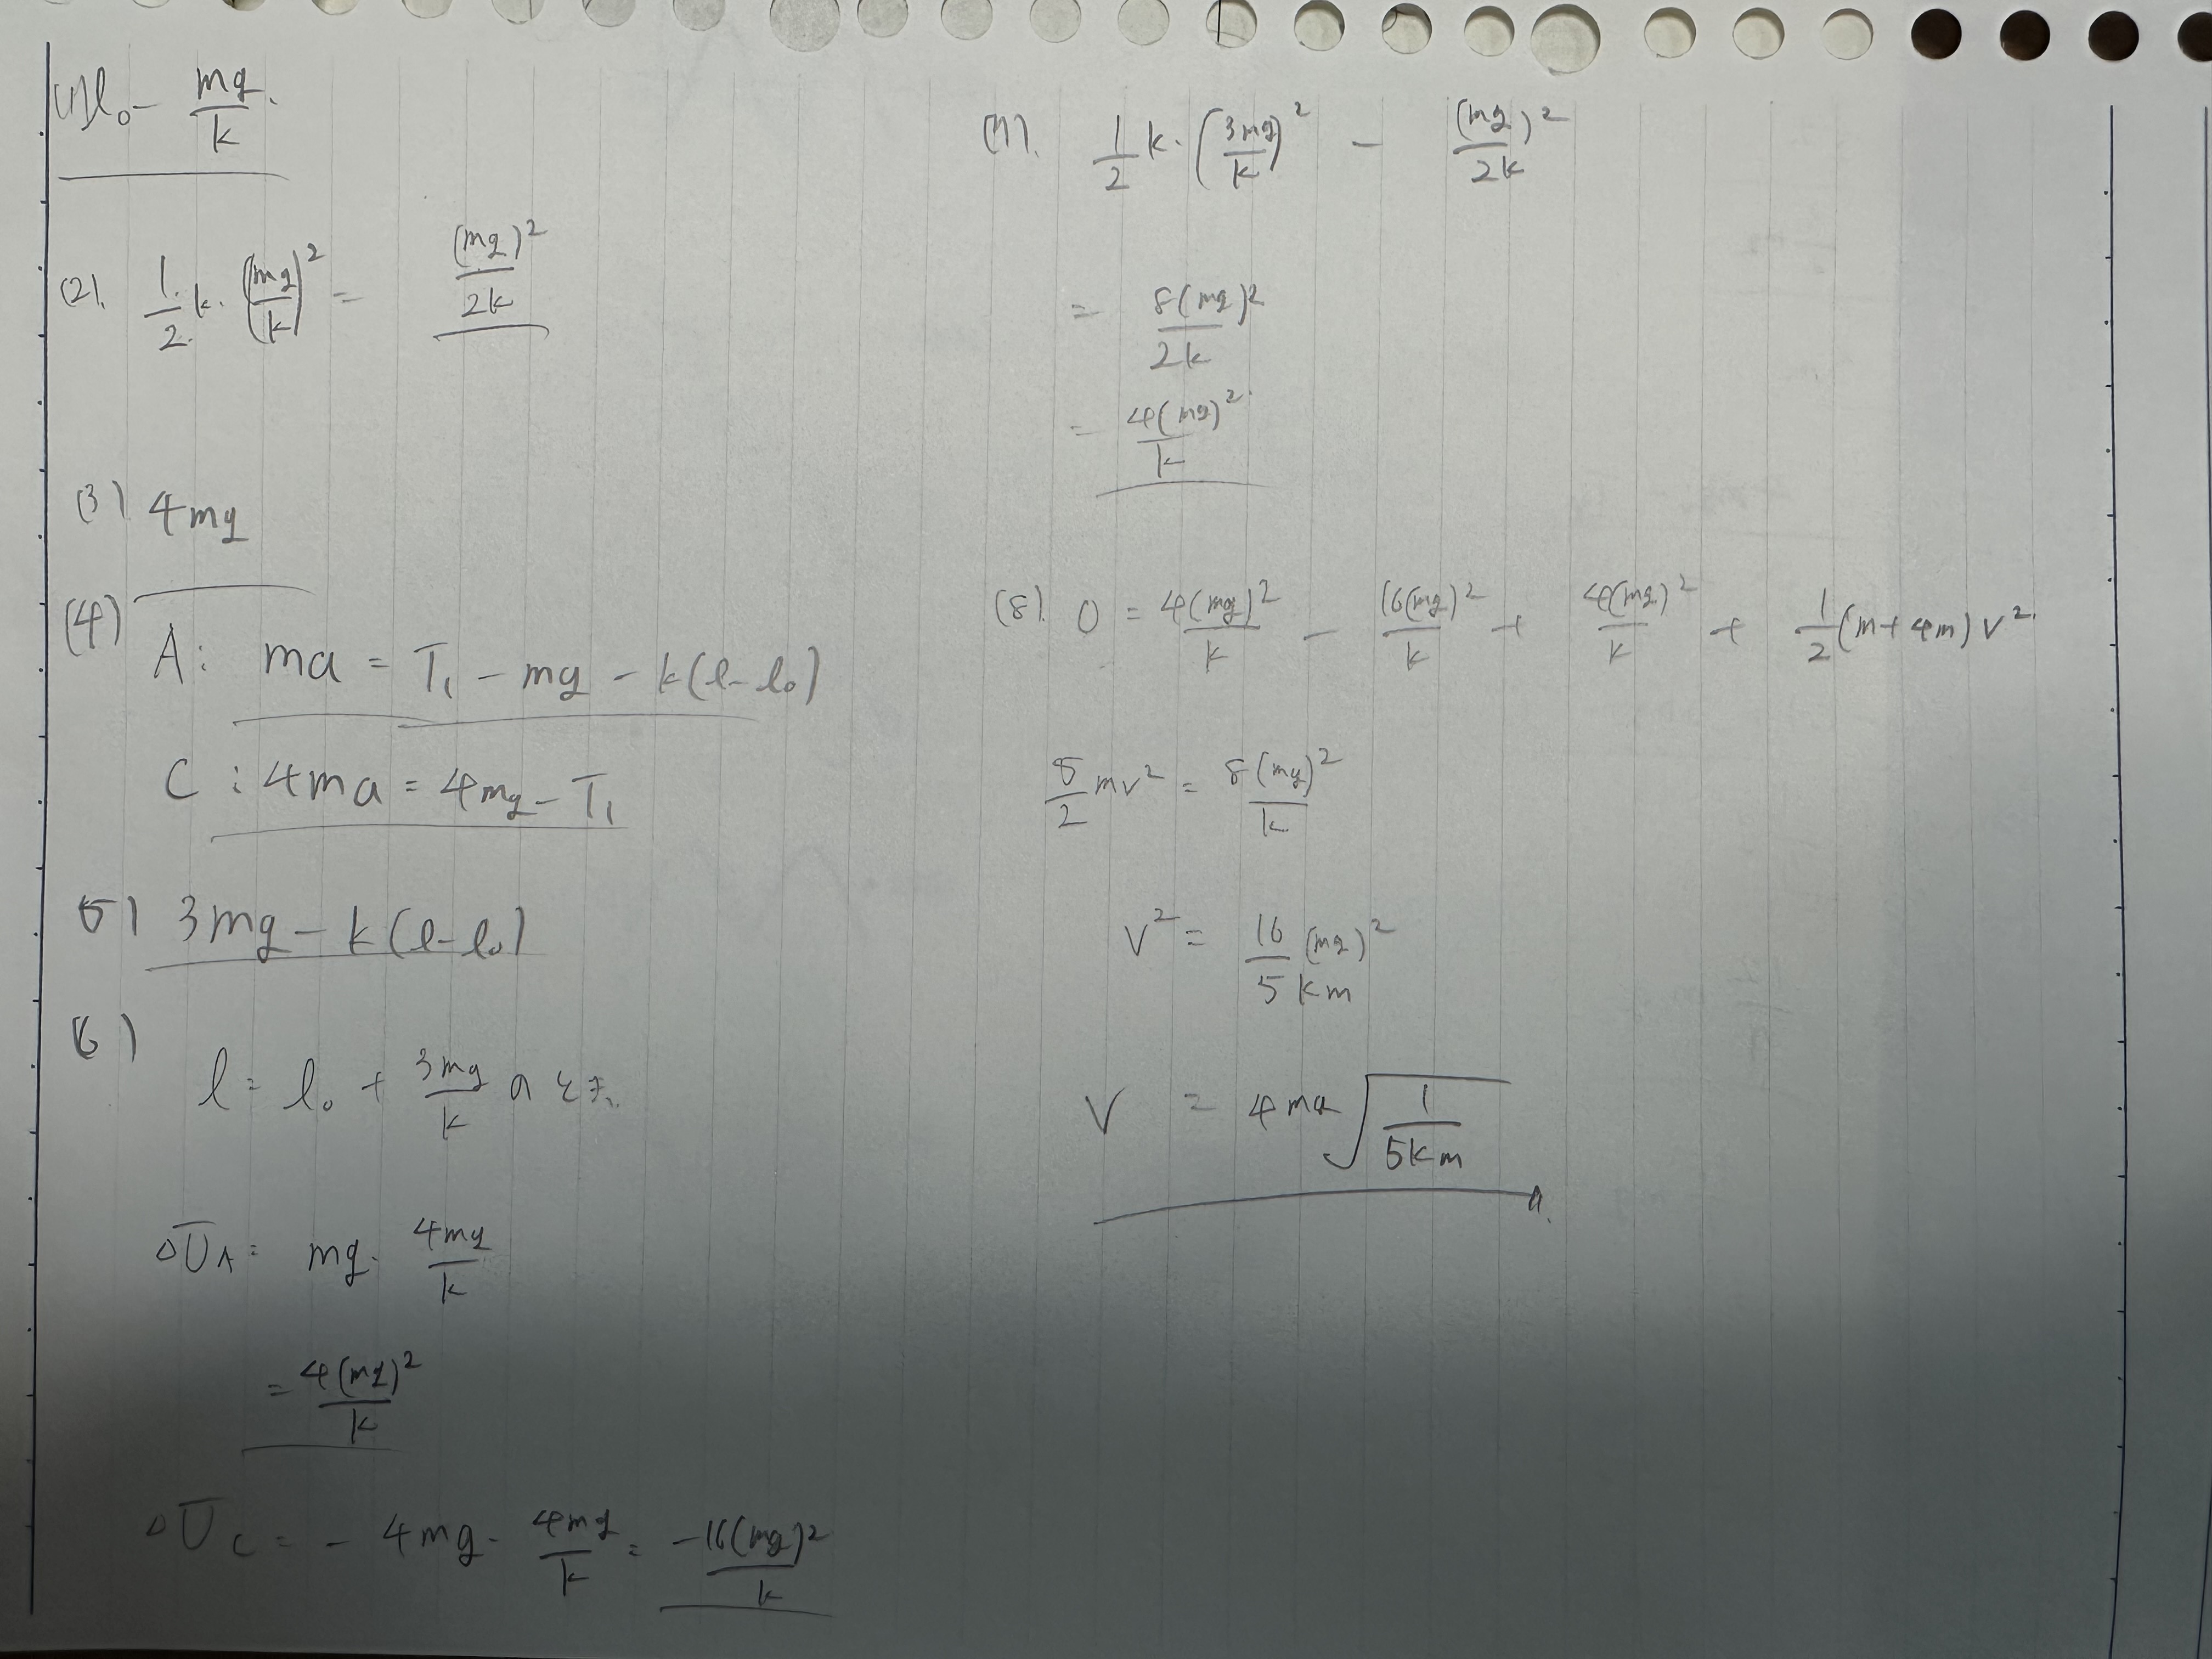 (1) l₀ - mg/k
(2). 1/2 k・(mg/k)² = (mg)²/2k
(3) 4mg
(4)
A: ma = T₁ - mg - k(l - l₀)
C: 4ma = 4mg - T₁
(5) 3mg - k(l - l₀)
(6)
l = l₀ + 3mg/k のとき、
ΔU_A = mg・4mg/k
= 4(mg)²/k
ΔU_C = - 4mg・4mg/k = -16(mg)²/k
(7). 1/2 k・(3mg/k)² - (mg)²/2k
= 8(mg)²/2k
= 4(mg)²/k
(8). 0 = 4(mg)²/k - 16(mg)²/k + 4(mg)²/k + 1/2 (m+4m) v²
5/2 mv² = 8(mg)²/k
v² = 16(mg)²/5km
v = 4mg √(1/5km)